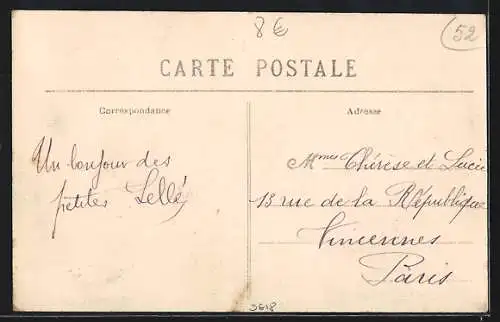 8€
52
CARTE POSTALE
Correspondance
Adresse
Un bonjour des
petites Lellé
Mmes Thérèse et Lucie
13 rue de la République
Vincennes
Paris